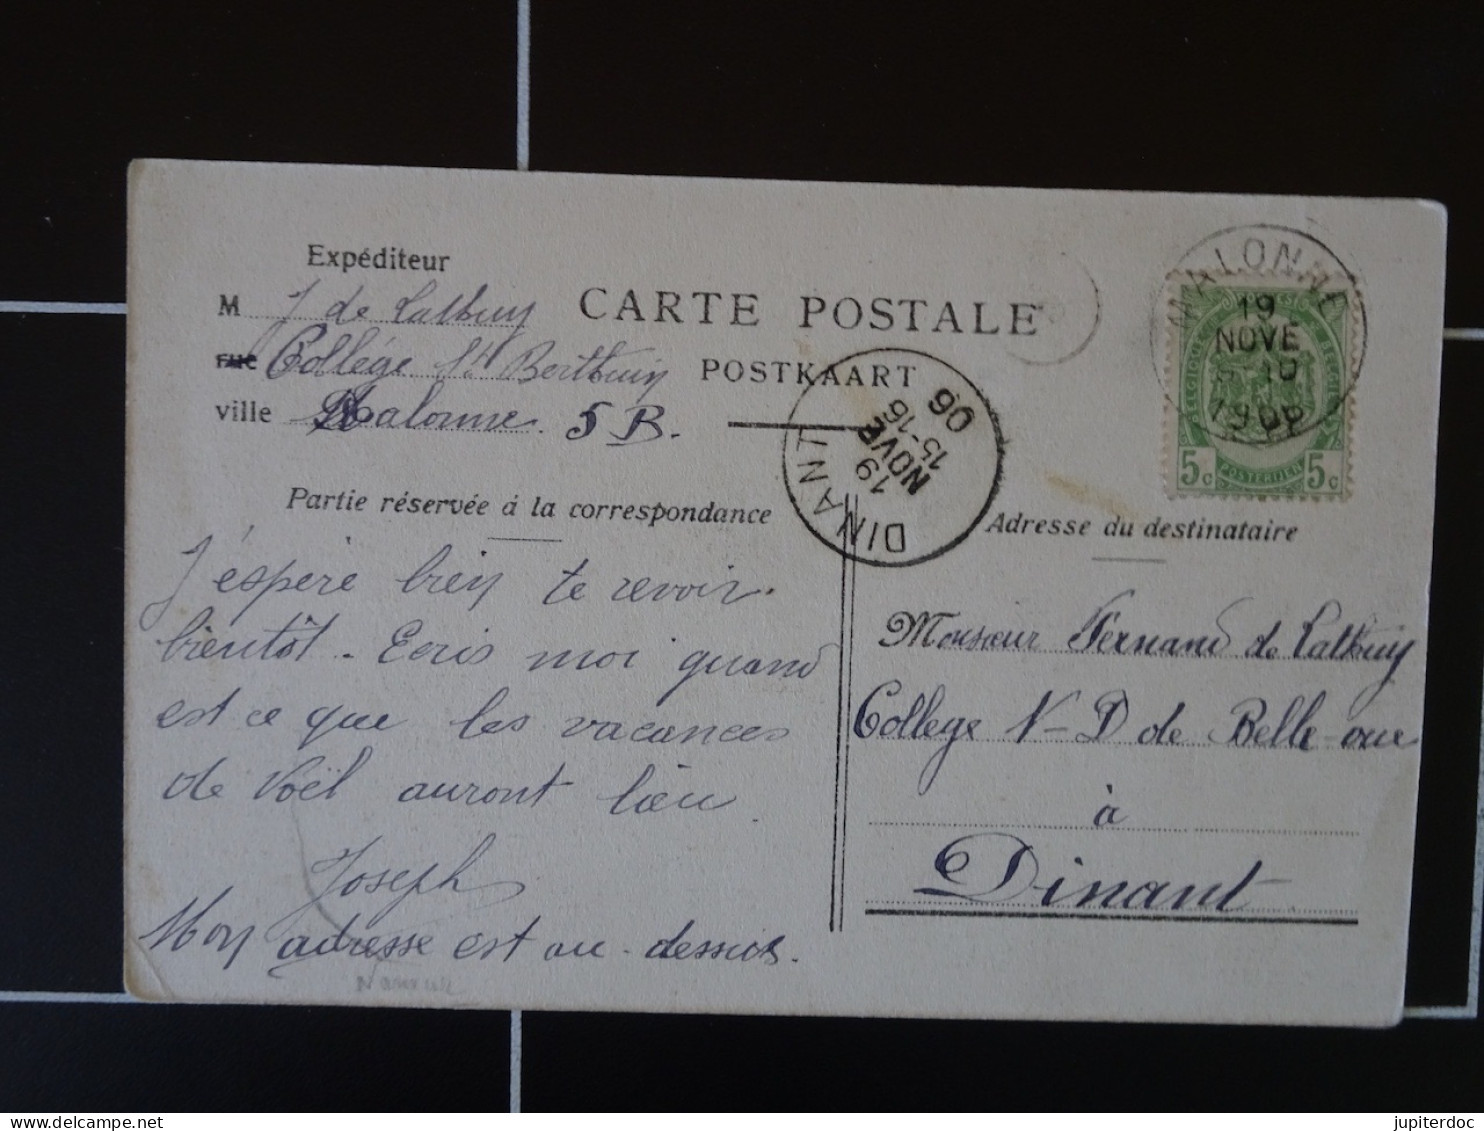 Expéditeur
M J de Lalbuy
CARTE POSTALE
rue Collège St Berthuin
POSTKAART
ville Malonne. 5 B.
MALONNE
19
NOVE
1906
5c POSTERIJEN 5c
DINANT
19
NOVE
15-16
06
Partie réservée à la correspondance
Adresse du destinataire
J'éspère bien te revoir
bientôt. Ecris moi quand
est ce que les vacances
de Noël auront lieu
Joseph
Mon adresse est au-dessus.
Namur
Monsieur Fernand de Lalbuy
College N-D de Belle-vue
à
Dinant
jupiterdoc